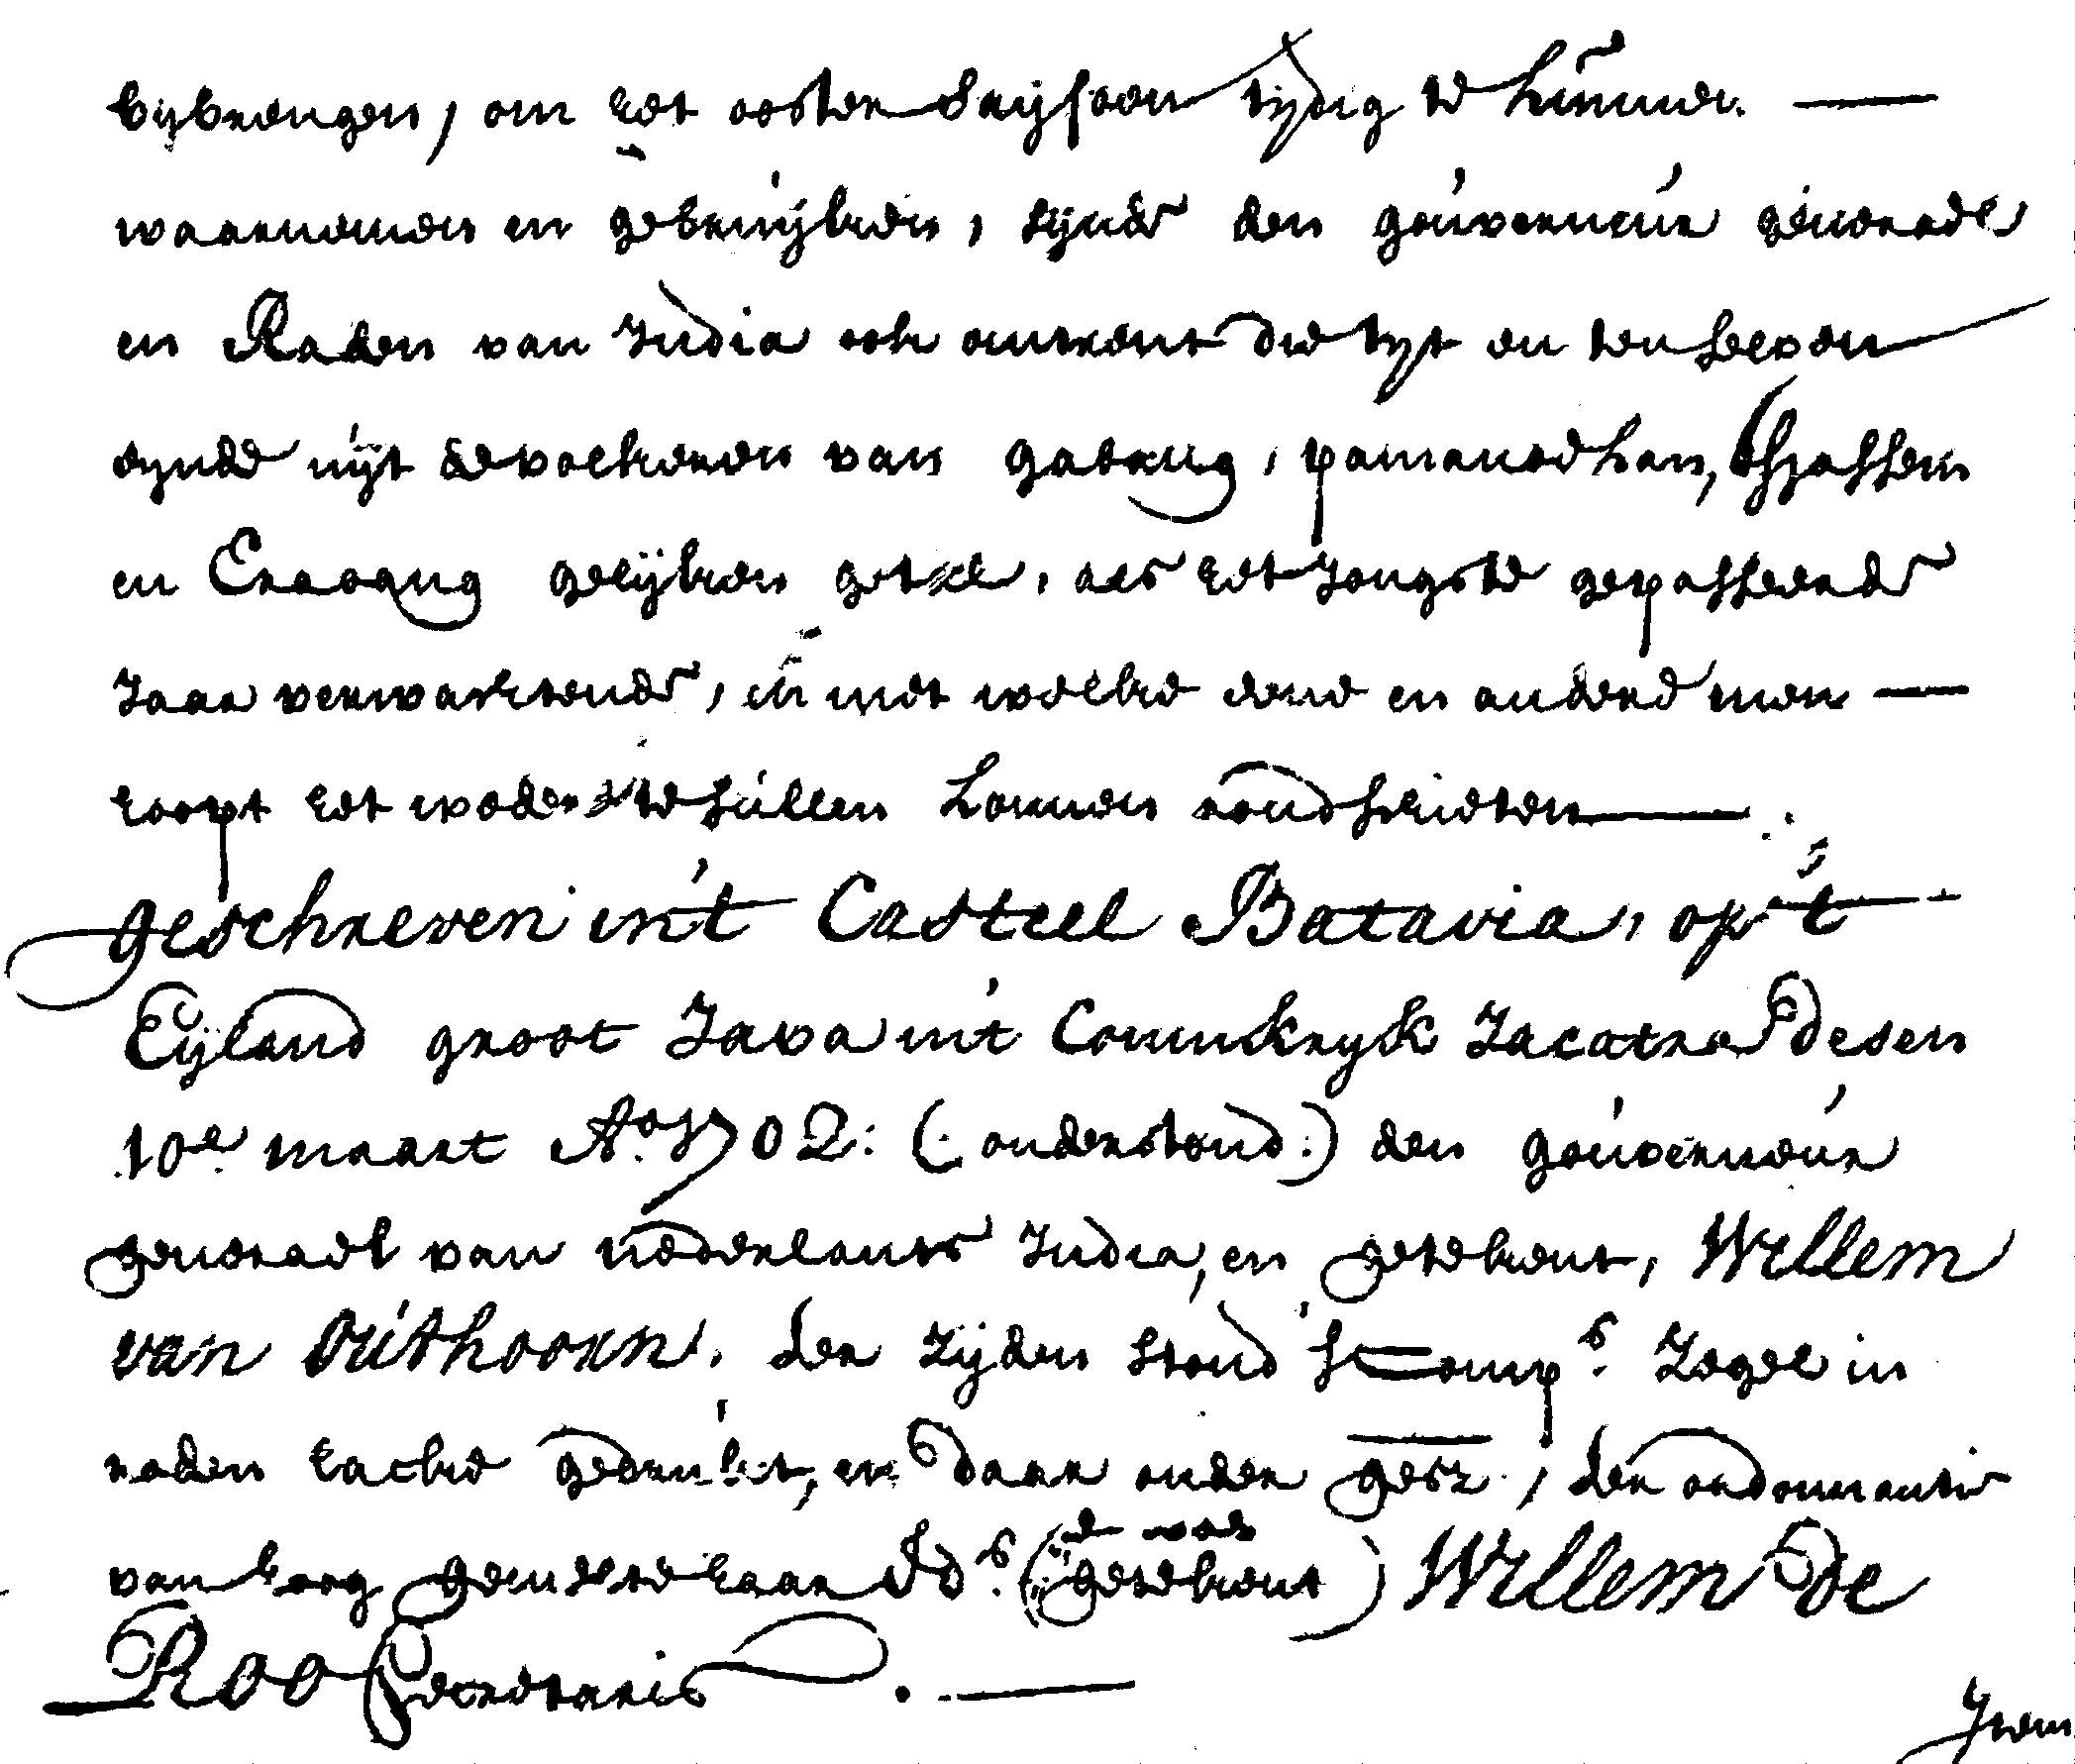 bijbrengen, om het ooster saijsoen tijdig te kunnen
waarnemen en gebruijken, sijnde den gouverneur generael
en Raden van India ook omtrent die tijt en ten selven
eijnde uijt de volkeren van gabang, pamanoekan, Tsjassem
en Craoang gelijken getal, als het Jongste gepasseerde
Jaar verwachtende, en met welke eene en andere men
hoopt het water te sullen konnen rondschieten
geschreven in't Casteel Batavia, op 't
Eijland groot Java in't Coninkryk Jacatra desen
10e maart Ao. 1702: (:onderstond:) den gouverneur
generael van nederlants India, en getekent, Willem
van Outhoorn. ter zijden stond 'sComps. Zegel in
roden lacke gedrukt, en daar onder gesz., ter ordonnantie
van hoog gemelte haar Eds. (:en was getekent) Willem de
Roo Secretaris.
Item